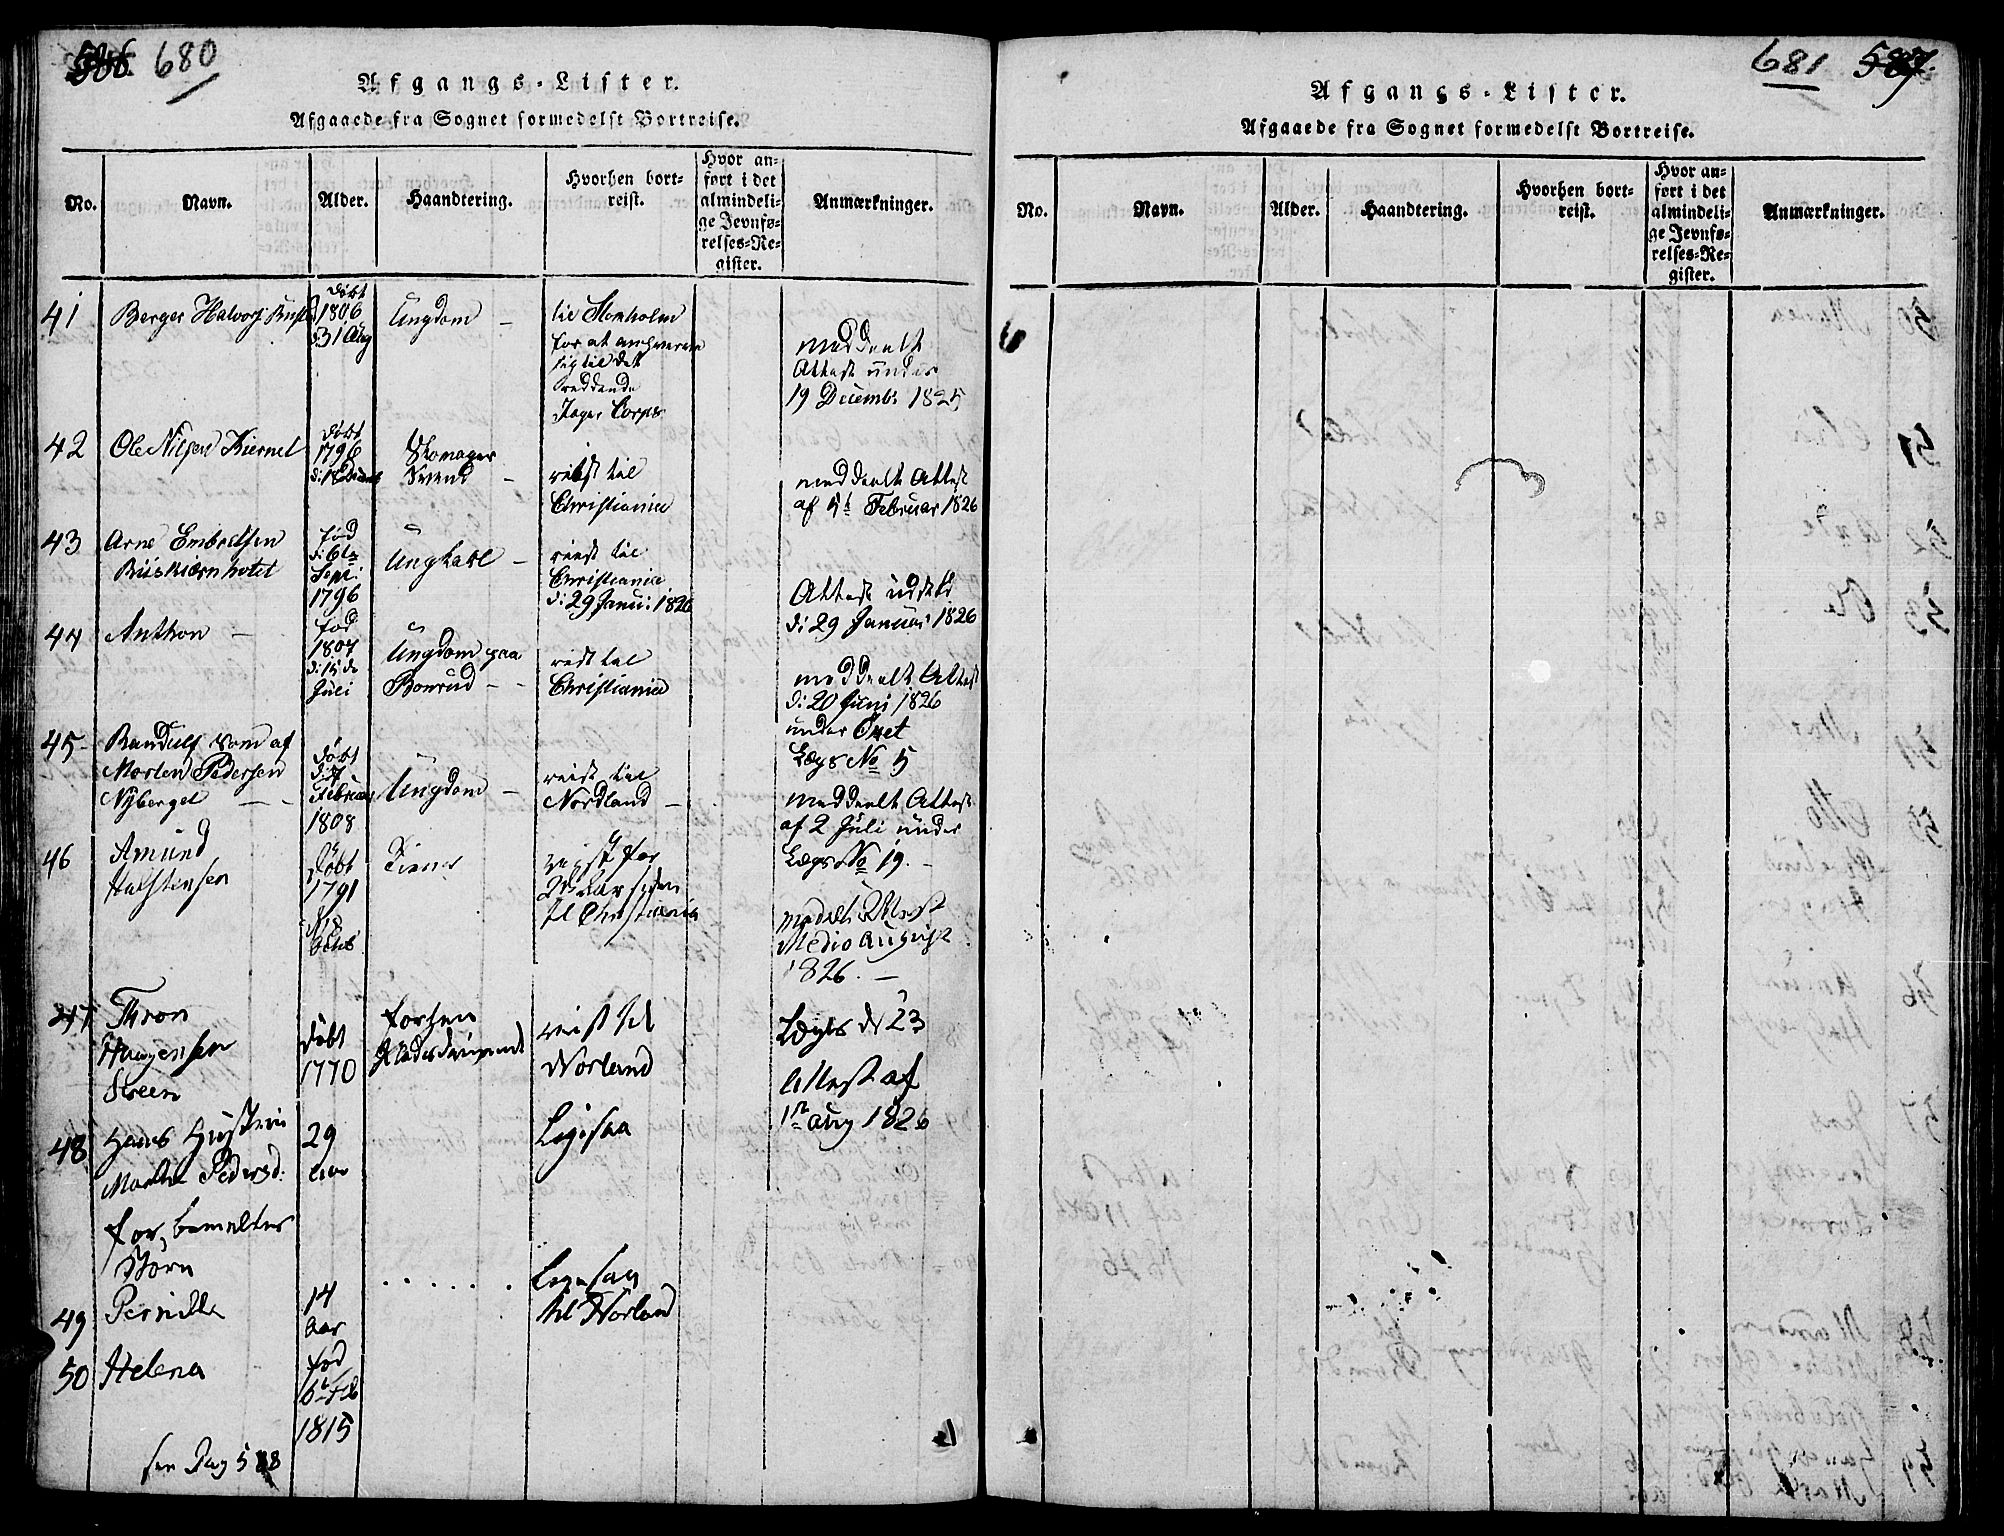 586 680
Afgangs-Lister.
Afgaaede fra Sognet formedelst Bortreise.
No.
Navn.
Alder.
Haandtering.
Hvorhen bort-
reist.
Hvor an-
ført i det
almindeli-
ge Jevnfø-
relses-Re-
gister.
Anmærkninger.
41
Berger Halvors
døbt
1806
d: 31 Aug
Ungdom -
til
for at
sig til det
Jæger Corps
meddeelt
Attest under
19 Decembr 1825
42
Ole Nilsen Kiernet
døbt
1796
Skomager
Svend -
reist til
Christiania
meddeelt Attest
af Februar 1826
43
Arne Embretsen
Buskiærnhotet
fød
d: 6te
Sept:
1796
Ungkarl -
reist til
Christiania
d: 29 Janu: 1826
Attest udstd
d: 29 Januar 1826
44
Anthon -
fød
1807
d: 15de
Juli
Ungdom paa
Bonrud - -
reist til
Christiania
meddeelt Attest
d: 20 Juni 1826
under Øset
Lægs No 5
45
Randulf søn af
Morten Pedersen
Nyberget - -
døbt
d: 7
Februar
1808
Ungdom -
reist til
Nordland -
meddeelt Attest
af 2 Juli under
Lægs No 19. -
46
Amund
Halstensen
døbt
1791
Tiener
reist for
2de Aar siden
til Christiania
meddelt Attest
Medio August
1826. -
47
Thron
Haagensen
Steen
døbt
1770
forhen
reist til
Norland
Lægs № 23
Attest af
1ste aug 1826
48
Hans Hustrue
Marthe Pedersd:
29
aar
Ligesaa
for, bemeldtes
Børn
49
Pernille
14
Aar
. . . . . .
Ligesaa
til Norland
50
Helena
fød
6te Feb
1815
see Pag 588
681 587.
Afgangs-Lister.
Afgaaede fra Sognet formedelst Bortreise.
No.
Navn.
Alder.
Haandtering.
Hvorhen bort-
reist.
Hvor an-
ført i det
almindeli-
ge Jevnfø-
relses-Re-
gister.
Anmærkninger.